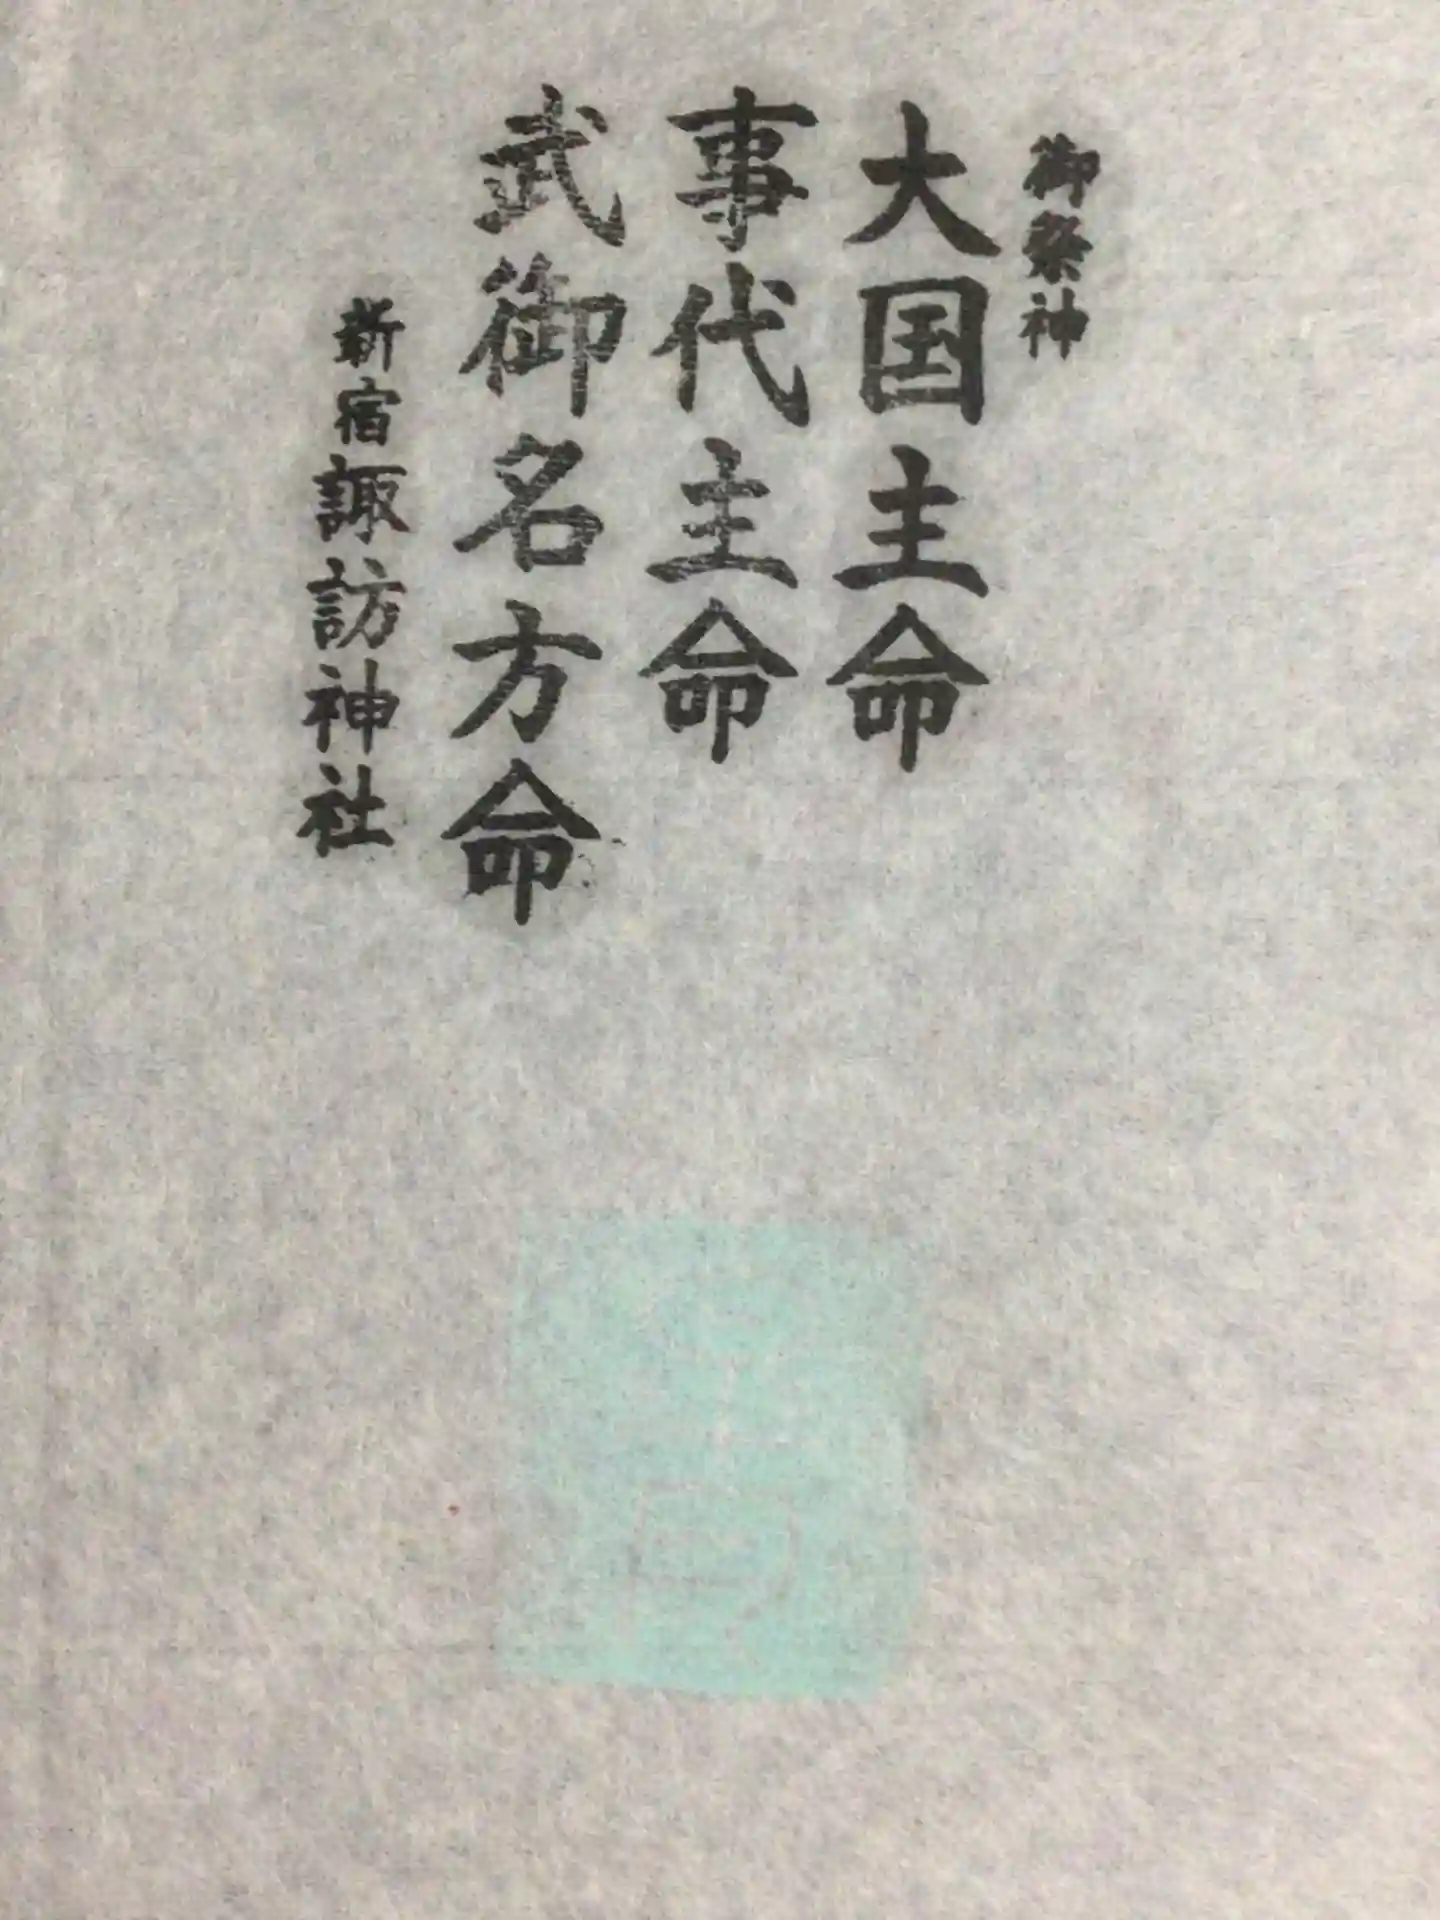 御祭神
大国主命
事代主命
武御名方命
新宿諏訪神社